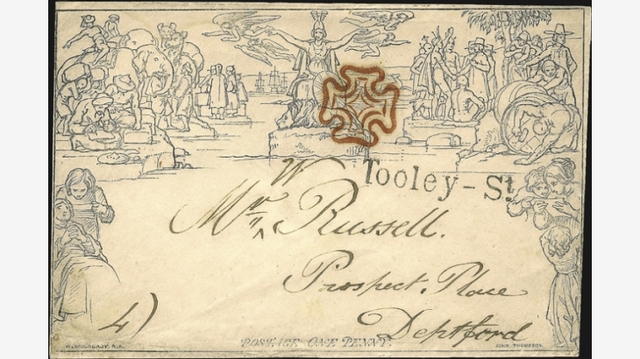 Tooley-St.
W
Mr. ^ Russell.
Prospect Place
Deptford
4)
W. MULREADY. R.A.
POSTAGE ONE PENNY.
JOHN THOMPSON